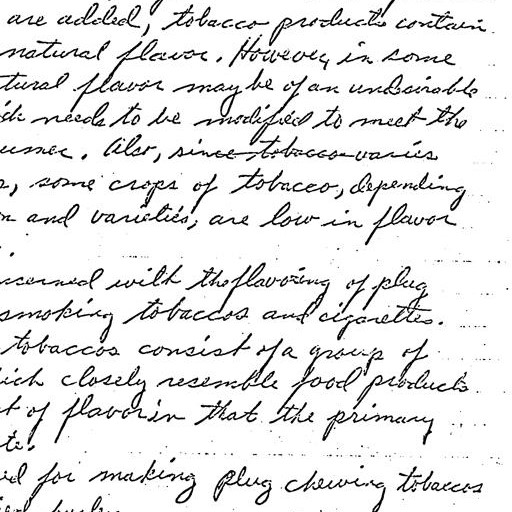 are added, tobacco products contain
natural flavor. However, in some
tural flavor may be of an undesirable
ich needs to be modified to meet the
umer. Also, since tobacco varies
, some crops of tobacco, depending
n and varieties, are low in flavor
.
ncerned with the flavoring of plug
smoking tobaccos and cigarettes.
tobaccos consist of a group of
ich closely resemble food products
t of flavor in that the primary
te.
ed for making plug chewing tobaccos